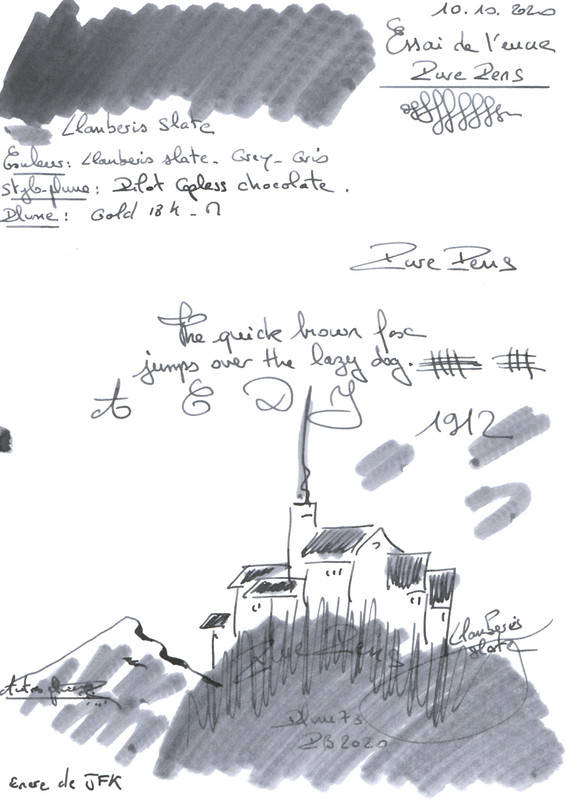 10.10.2020
Essai de l'encre
Pure Pens
Llanberis Slate
Couleur: Llanberis slate - Grey - Gris
Stylo-plume: Pilot Capless chocolate.
Plume: Gold 18k - M
Pure Pens
The quick brown fox
jumps over the lazy dog.
A E D Y
1912
Llanberis
slate
Pure Pens
Plume 73
PB 2020
Encre de JFK